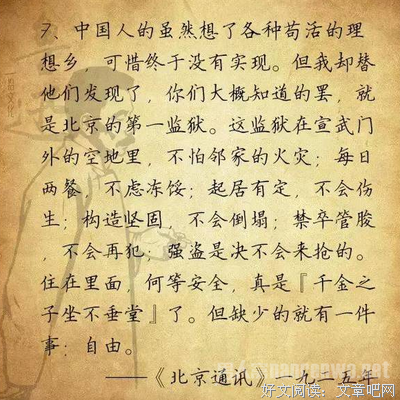 7、中国人的虽然想了各种苟活的理
想乡, 可惜终于没有实现。但我却替
他们发现了, 你们大概知道的罢, 就
是北京的第一监狱。这监狱在宣武门
外的空地里, 不怕邻家的火灾; 每日
两餐, 不虑冻馁; 起居有定, 不会伤
生; 构造坚固, 不会倒塌; 禁卒管朘
, 不会再犯; 强盗是决不会来抢的。
住在里面, 何等安全, 真是『千金之
子坐不垂堂』了。但缺少的就有一件
事: 自由。
——《北京通讯》一九二五年
好文阅读: 文章吧网